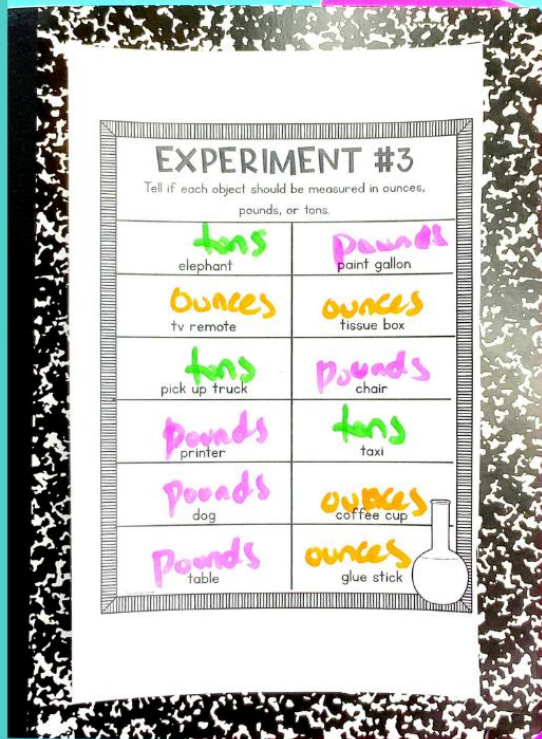 EXPERIMENT #3
Tell if each object should be measured in ounces,
pounds, or tons.
tons
elephant
pounds
paint gallon
ounces
tv remote
ounces
tissue box
tons
pick up truck
pounds
chair
pounds
printer
tons
taxi
pounds
dog
ounces
coffee cup
pounds
table
ounces
glue stick